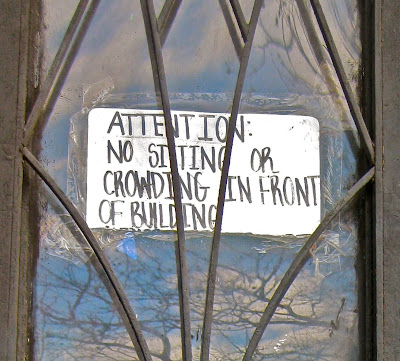 ATTENTION:
NO SITTING OR
CROWDING IN FRONT
OF BUILDING